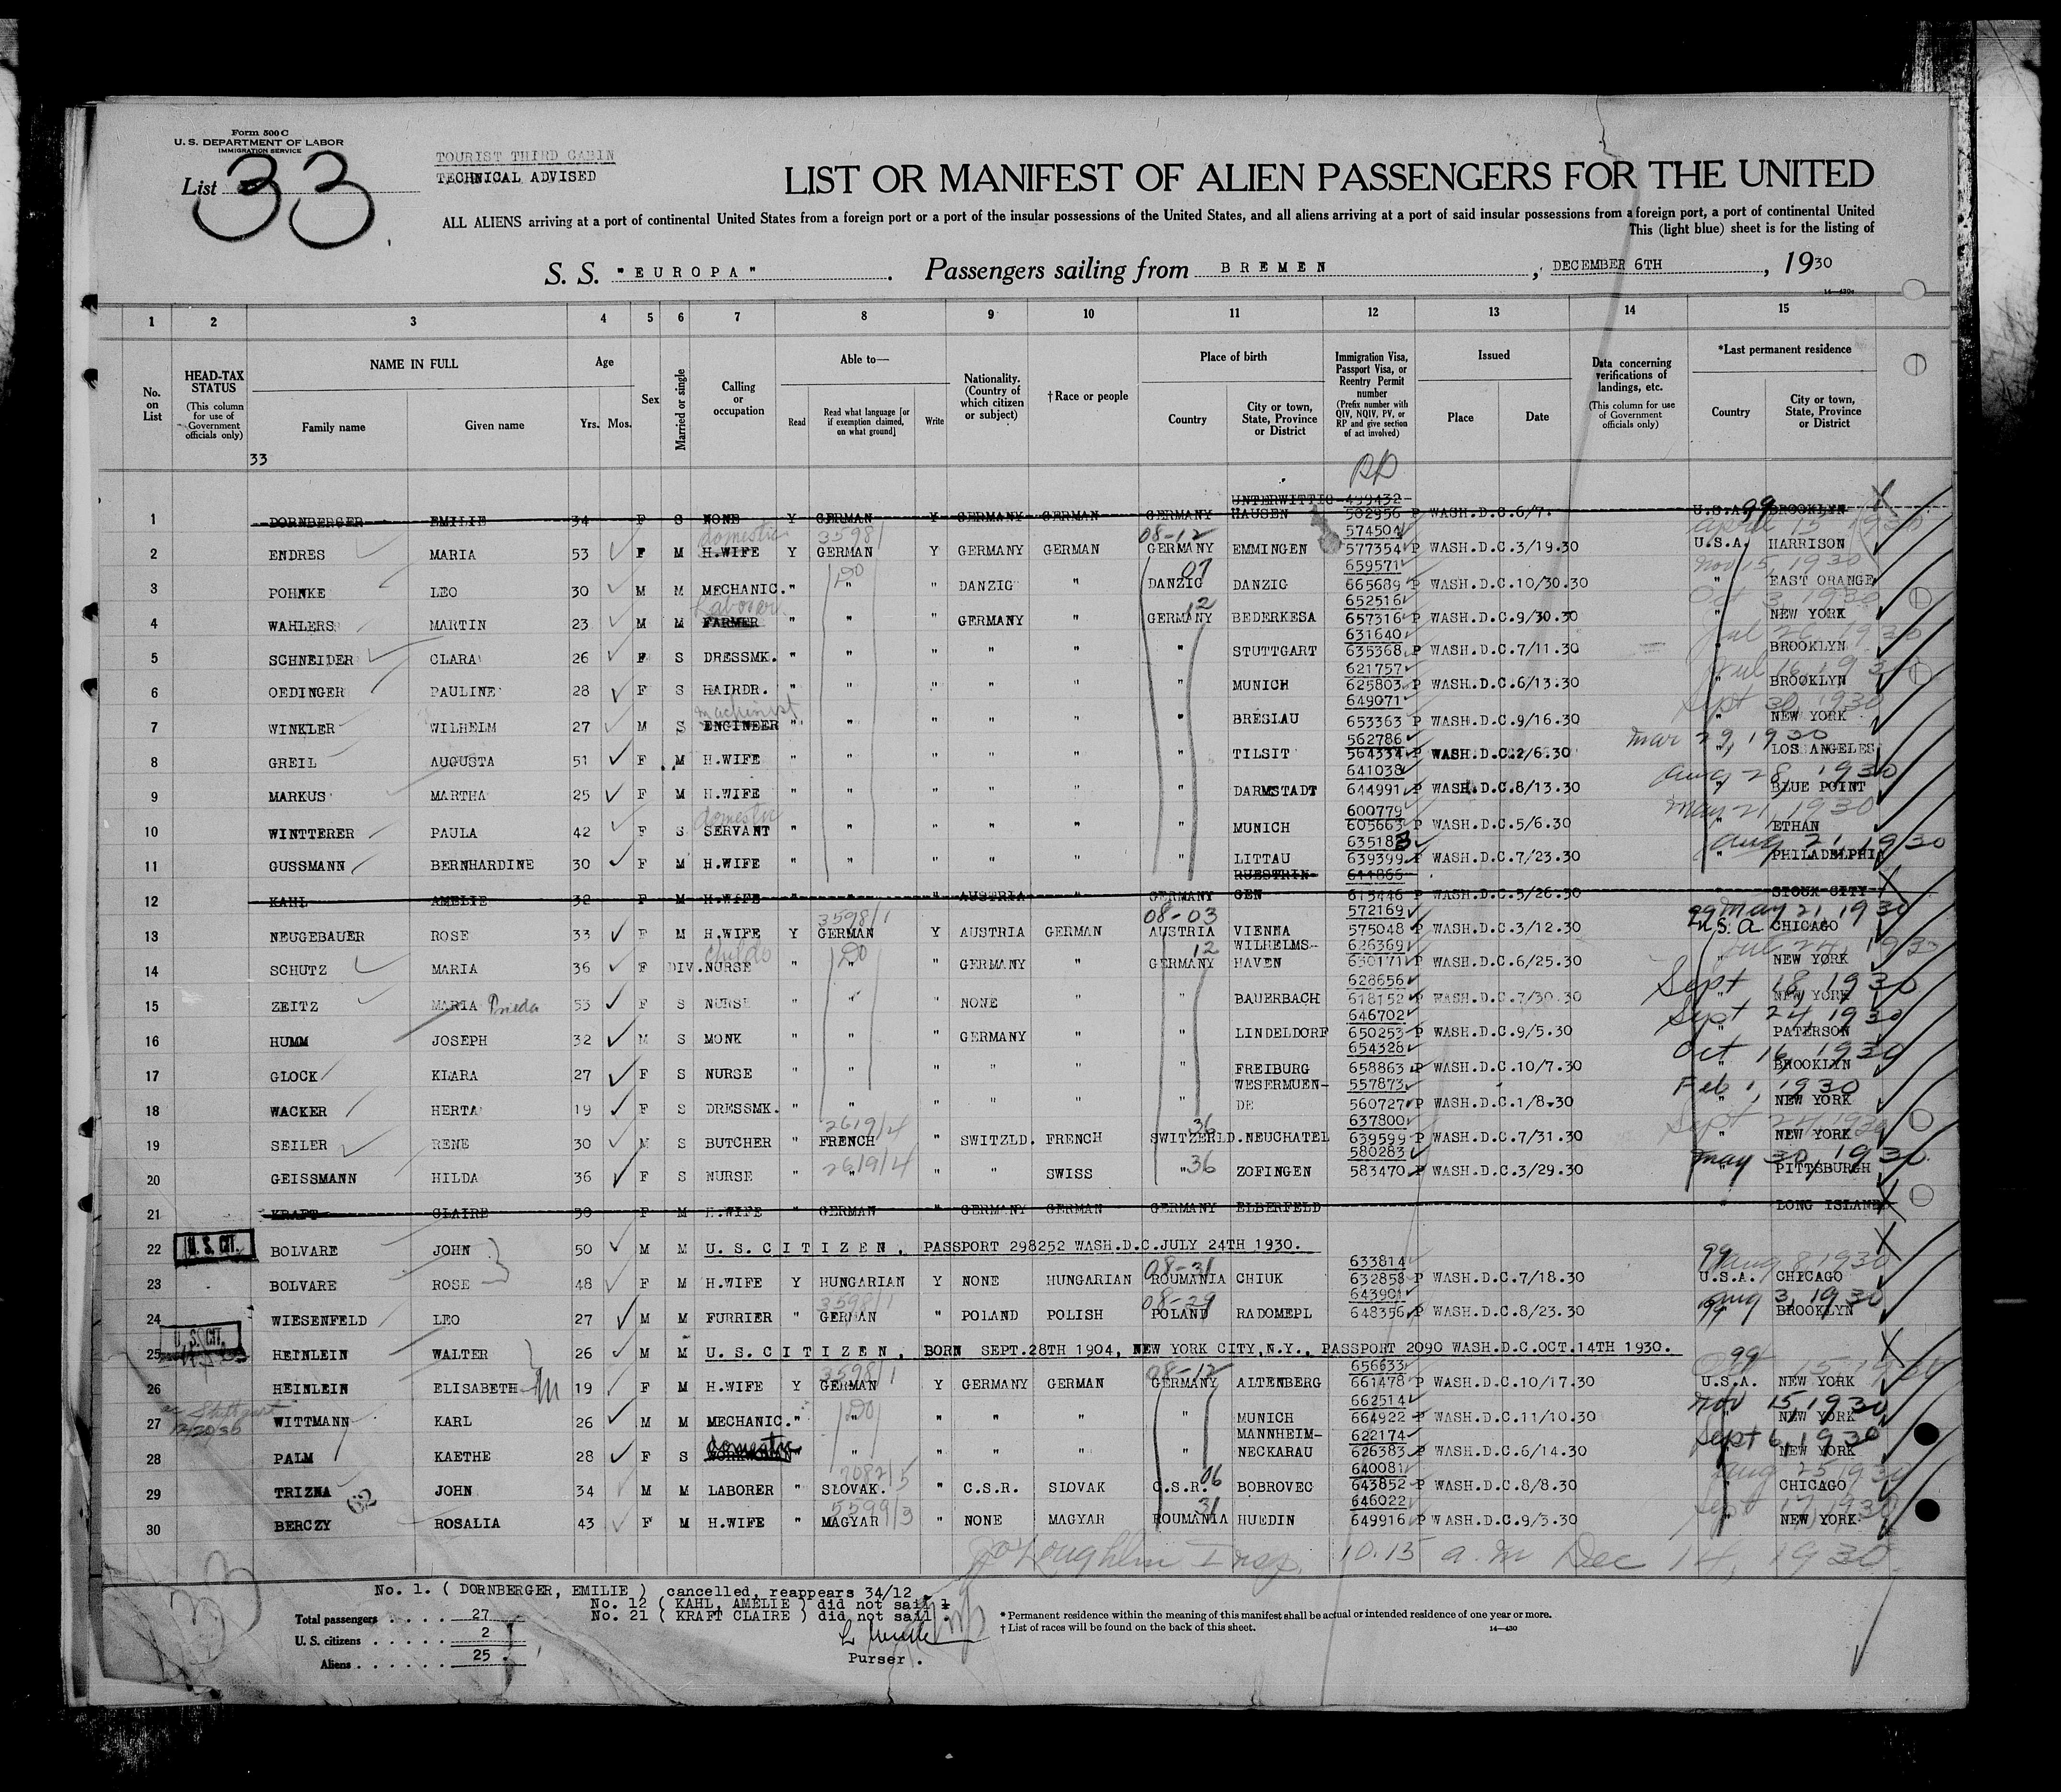 Form 500 C
U. S. DEPARTMENT OF LABOR
IMMIGRATION SERVICE
List 33
TOURIST THIRD CABIN
TECHNICAL ADVISED
LIST OR MANIFEST OF ALIEN PASSENGERS FOR THE UNITED
ALL ALIENS arriving at a port of continental United States from a foreign port or a port of the insular possessions of the United States, and all aliens arriving at a port of said insular possessions from a foreign port, a port of continental United
This (light blue) sheet is for the listing of
S. S. "EUROPA" . Passengers sailing from BREMEN , DECEMBER 6TH , 1930
1 2 3 4 5 6 7 8 9 10 11 12 13 14 15
No. on List
HEAD-TAX STATUS (This column for use of Government officials only)
NAME IN FULL Family name Given name
Age Yrs. Mos.
Sex
Married or single
Calling or occupation
Able to— Read Read what language [or if exemption claimed, on what ground] Write
Nationality. (Country of which citizen or subject)
†Race or people
Place of birth Country City or town, State, Province or District
Immigration Visa, Passport Visa, or Reentry Permit number (Prefix number with QIV, NQIV, PV, or RP and give section of act involved)
Issued Place Date
Data concerning verifications of landings, etc. (This column for use of Government officials only)
*Last permanent residence Country City or town, State, Province or District
33
RP
UNTERWITTIG 499432
1 DORNBERGER EMILIE 34 F S NONE Y GERMAN Y GERMANY GERMAN GERMANY HAUSEN 502956 P WASH.D.C.6/7. U.S.A. 99 BROOKLYN
domestic 3598/1 08-12 574504 april 15 1930
2 ENDRES MARIA 53 F M H.WIFE Y GERMAN Y GERMANY GERMAN GERMANY EMMINGEN 577354 P WASH.D.C.3/19.30 U.S.A. HARRISON
Do 07 659571 Nov 15, 1930
3 POHNKE LEO 30 M M MECHANIC. " " " DANZIG " DANZIG DANZIG 665689 P WASH.D.C.10/30.30 " EAST ORANGE
Laborer 12 652516 Oct 3, 1930
4 WAHLERS MARTIN 23 M M FARMER " " " GERMANY " GERMANY BEDERKESA 657316 P WASH.D.C.9/30.30 " NEW YORK
631640 Jul 26, 1930
5 SCHNEIDER CLARA 26 F S DRESSMK. " " " " " " STUTTGART 635368 P WASH.D.C.7/11.30 " BROOKLYN
621757 Jul 16, 1930
6 OEDINGER PAULINE 28 F S HAIRDR. " " " " " " MUNICH 625803 P WASH.D.C.6/13.30 " BROOKLYN
machinist 649071 Sept 30, 1930
7 WINKLER WILHELM 27 M S ENGINEER " " " " " " BRESLAU 653363 P WASH.D.C.9/16.30 " NEW YORK
562786 Mar 29, 1930
8 GREIL AUGUSTA 51 F M H.WIFE " " " " " " TILSIT 564334 P WASH.D.C.2/6.30 " LOS ANGELES
641038 Aug 28, 1930
9 MARKUS MARTHA 25 F M H.WIFE " " " " " " DARMSTADT 644991 P WASH.D.C.8/13.30 " BLUE POINT
domestic 600779 May 21, 1930
10 WINTTERER PAULA 42 F S SERVANT " " " " " " MUNICH 605663 P WASH.D.C.5/6.30 " ETHAN
635183 Aug 21, 1930
11 GUSSMANN BERNHARDINE 30 F M H.WIFE " " " " " " LITTAU 639399 P WASH.D.C.7/23.30 " PHILADELPHIA
RUESTRIN- 611866
12 KAHL AMELIE 32 F M H.WIFE " " " AUSTRIA " GERMANY GEN 615446 P WASH.D.C.5/26.30 SIOUX CITY
3598/1 08-03 572169 99 May 21, 1930
13 NEUGEBAUER ROSE 33 F M H.WIFE Y GERMAN Y AUSTRIA GERMAN AUSTRIA VIENNA 575048 P WASH.D.C.3/12.30 U.S.A CHICAGO
Childs Do 12 WILHELMS- 626369 Jul 24, 1930
14 SCHUTZ MARIA 36 F DIV. NURSE " " " GERMANY " GERMANY HAVEN 630171 P WASH.D.C.6/25.30 " NEW YORK
628656 Sept 18, 1930
15 ZEITZ MARIA Frieda 53 F S NURSE " " " NONE " " BAUERBACH 618152 P WASH.D.C.7/30.30 " NEW YORK
646702 Sept 24, 1930
16 HUMM JOSEPH 32 M S MONK " " " GERMANY " LINDELDORF 650253 P WASH.D.C.9/5.30 " PATERSON
654328 Oct 16, 1930
17 GLOCK KLARA 27 F S NURSE " " " " " " FREIBURG 658863 P WASH.D.C.10/7.30 " BROOKLYN
WESERMUEN- 557873 Feb 1, 1930
18 WACKER HERTA 19 F S DRESSMK. " " " " " " DE 560727 P WASH.D.C.1/8.30 " NEW YORK
2619/4 36 637800 Sept 24, 1930
19 SEILER RENE 30 M S BUTCHER " FRENCH " SWITZLD. FRENCH SWITZERLD. NEUCHATEL 639599 P WASH.D.C.7/31.30 " NEW YORK
2619/4 36 580283 May 30, 1930
20 GEISSMANN HILDA 36 F S NURSE " " " " SWISS " ZOFINGEN 583470 P WASH.D.C.3/29.30 " PITTSBURGH
21 KRAFT CLAIRE 30 F M H.WIFE " GERMAN " GERMANY GERMAN GERMANY ELBERFELD " LONG ISLAND
U. S. CIT.
22 BOLVARE JOHN 50 M M U.S.CITIZEN, PASSPORT 298252 WASH.D.C.JULY 24TH 1930.
08-31 633814 99 Aug 8, 1930
23 BOLVARE ROSE 48 F M H.WIFE Y HUNGARIAN Y NONE HUNGARIAN ROUMANIA CHIUK 632858 P WASH.D.C.7/18.30 U.S.A. CHICAGO
3598/1 08-29 643901 Aug 3, 1930
24 WIESENFELD LEO 27 M M FURRIER " GERMAN " POLAND POLISH POLAND RADOMEPL 648356 P WASH.D.C.8/23.30 99 BROOKLYN
U. S. CIT.
25 HEINLEIN WALTER 26 M M U.S.CITIZEN, BORN SEPT.28TH 1904, NEW YORK CITY,N.Y., PASSPORT 2090 WASH.D.C.OCT.14TH 1930.
3598/1 08-12 656633 99
26 HEINLEIN ELISABETH 19 F M H.WIFE Y GERMAN Y GERMANY GERMAN GERMANY ALTENBERG 661478 P WASH.D.C.10/17.30 U.S.A. NEW YORK
Do 662514 Nov 15, 1930
27 WITTMANN KARL 26 M M MECHANIC. " " " " " " MUNICH 664922 P WASH.D.C.11/10.30 " NEW YORK
domestic MANNHEIM- 622174 Sept 6, 1930
28 PALM KAETHE 28 F S WORKWOMAN " " " " " NECKARAU 626383 P WASH.D.C.6/14.30 " NEW YORK
7082/5 06 640081 Aug 25, 1930
29 TRIZNA JOHN 34 M M LABORER " SLOVAK. " C.S.R. SLOVAK C.S.R. BOBROVEC 643852 P WASH.D.C.8/8.30 " CHICAGO
5599/3 31 646022 Sept 17, 1930
30 BERCZY ROSALIA 43 F M H.WIFE " MAGYAR " NONE MAGYAR ROUMANIA HUEDIN 649916 P WASH.D.C.9/3.30 " NEW YORK
Insp. 10.15 a.m Dec 14, 1930
33
No. 1. ( DORNBERGER, EMILIE ) cancelled, reappears 34/12 .
No. 12 ( KAHL, AMELIE ) did not sail
No. 21 ( KRAFT CLAIRE ) did not sail .
Total passengers . . . . . 27
U. S. citizens . . . . . 2
Aliens . . . . . . 25
Purser .
* Permanent residence within the meaning of this manifest shall be actual or intended residence of one year or more.
† List of races will be found on the back of this sheet.
14—430